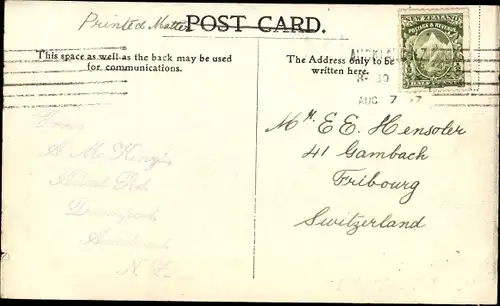 Printed Matter
POST CARD.
This space as well as the back may be used
for communications.
The Address only to be
written here.
NEW ZEALAND
POSTAGE & REVENUE
AUCKL
8- 30
AUG 7
From
A Mc Kenzie
N Z.
Mr. E E. Hensoler
41 Gambach
Fribourg
Switzerland